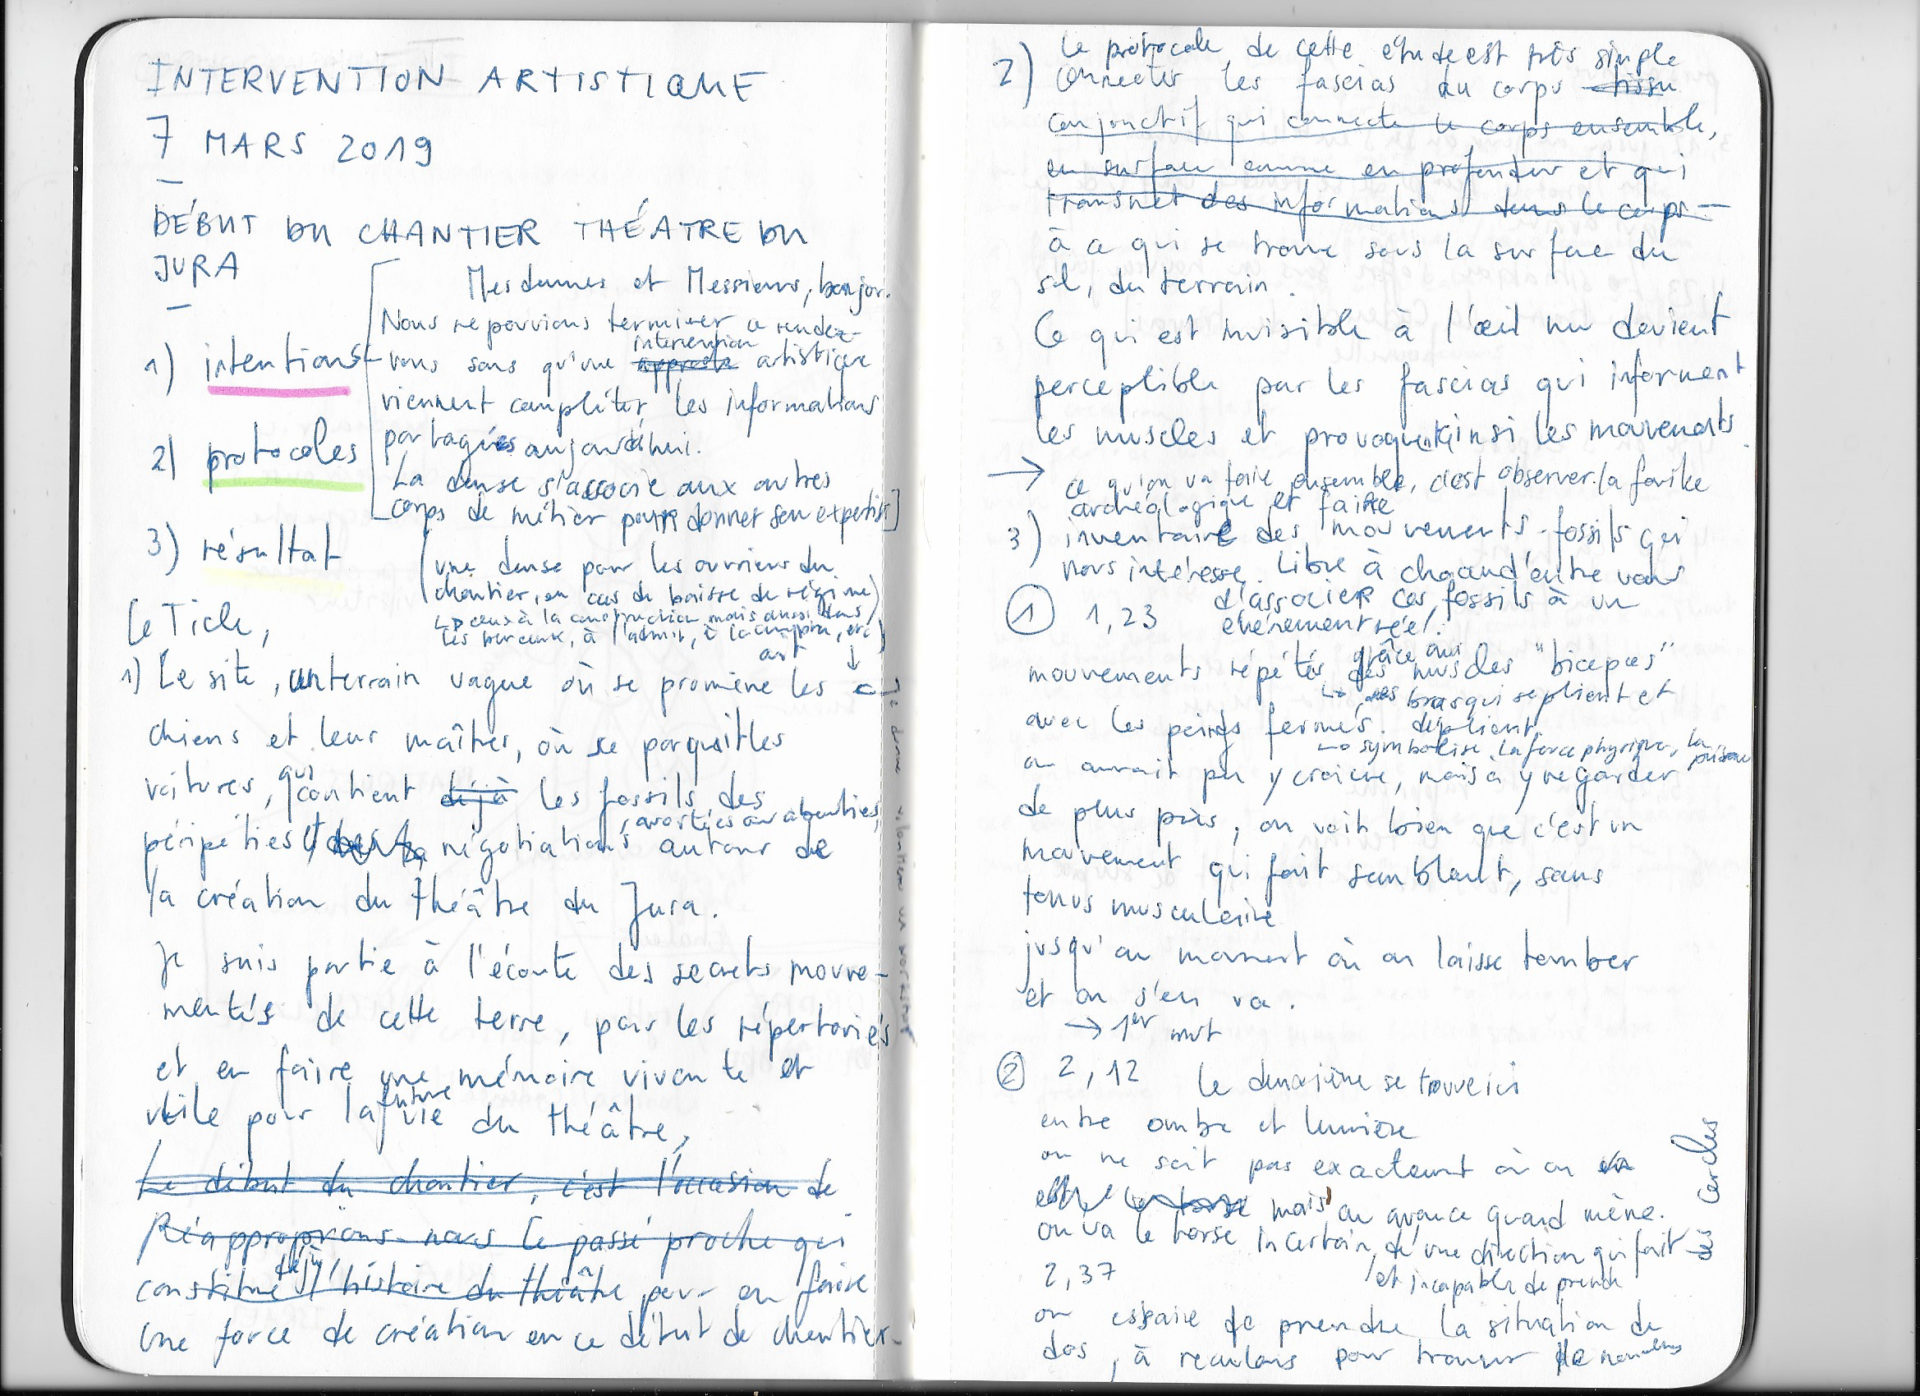 INTERVENTION ARTISTIQUE
7 MARS 2019
—
DÉBUT DU CHANTIER THÉATRE DU
JURA
—
Mesdames et Messieurs, bonjour.
Nous ne pouvions terminer ce rendez-
1) intentions
vous sans qu'une approche intervention artistique
viennent compléter les informations
partagées aujourd'hui.
2) protocoles
La danse s'associe aux autres
corps de métier pour donner son expertise]
3) résultat
(une danse pour les ouvriers du
chantier, en cas de baisse de régime)
↳ ceux à la construction mais aussi dans
les bureaux, à l'admin, à la compta, etc)
Le Ticle,
1) Le site, un terrain vague où se promène les
ont ↓
chiens et leur maîtres, où se parquait les
voitures, qui contient déjà les fossils des
péripéties et négotiations, avortées ou abouties, autour de
la création du théâtre du Jura.
Je suis partie à l'écoute des secrets mouve-
mentés de cette terre, pour les répertoriés
et en faire une mémoire vivante et
utile pour la future vie du théâtre,
Le début du chantier, c'est l'occasion de
Réapproprions-nous le passé proche qui
constitue déjà l'histoire du théâtre pour en faire
une force de création en ce début de chantier.
Je donne volontiers un workshop
2) Le protocole de cette étude est très simple
connecter les fascias du corps tissu
conjonctif qui connecte le corps ensemble,
en surface comme en profondeur et qui
transmet des informations dans le corps —
à ce qui se trouve sous la surface du
sol, du terrain.
Ce qui est invisible à l'œil nu devient
perceptible par les fascias qui informent
les muscles et provoquent ainsi les mouvements.
→ ce qu'on va faire ensemble, c'est observer la fouille
archéologique et faire
3) inventaire des mouvements-fossils qui
nous intéresse. Libre à chacun d'entre vous
① 1,23 d'associer ces fossils à un
événement réel.
mouvements répétés grâce aux des muscles "biceps"
↳ les bras qui se plient et
avec les poings fermés. déplient
↳ symbolise la force physique, la puissance
on aurait pu y croire, mais à y regarder
de plus près, on voit bien que c'est un
mouvement qui fait semblant, sans
tonus musculaire
jusqu'au moment où on laisse tomber
et on s'en va.
→ 1er mvt
② 2,12 Le deuxième se trouve ici
entre ombre et lumière
on ne sait pas exactement où on va
mais on avance quand même.
on va le torse incertain, et incapable de prendre d'une direction qui fait
des cercles
2,37
on essaie de prendre la situation de
dos, à reculons pour trouver de nouvelles